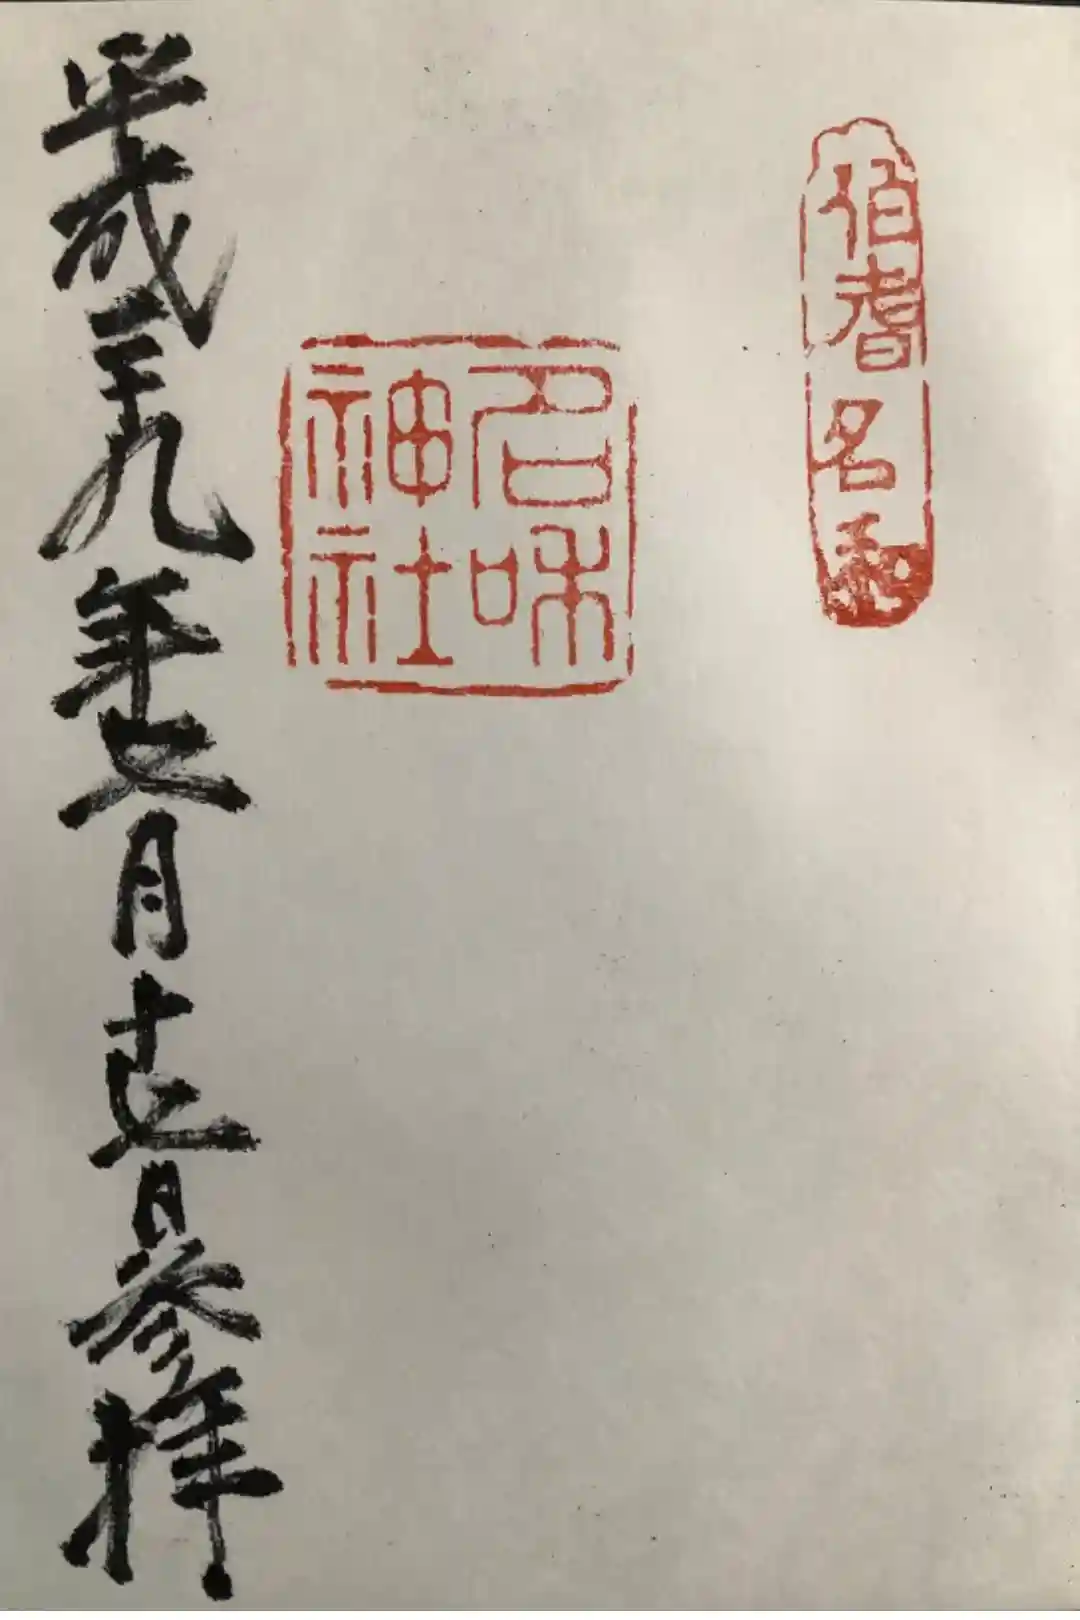 伯耆名和
名咊
神社
平成二十九年五月十五日参拝